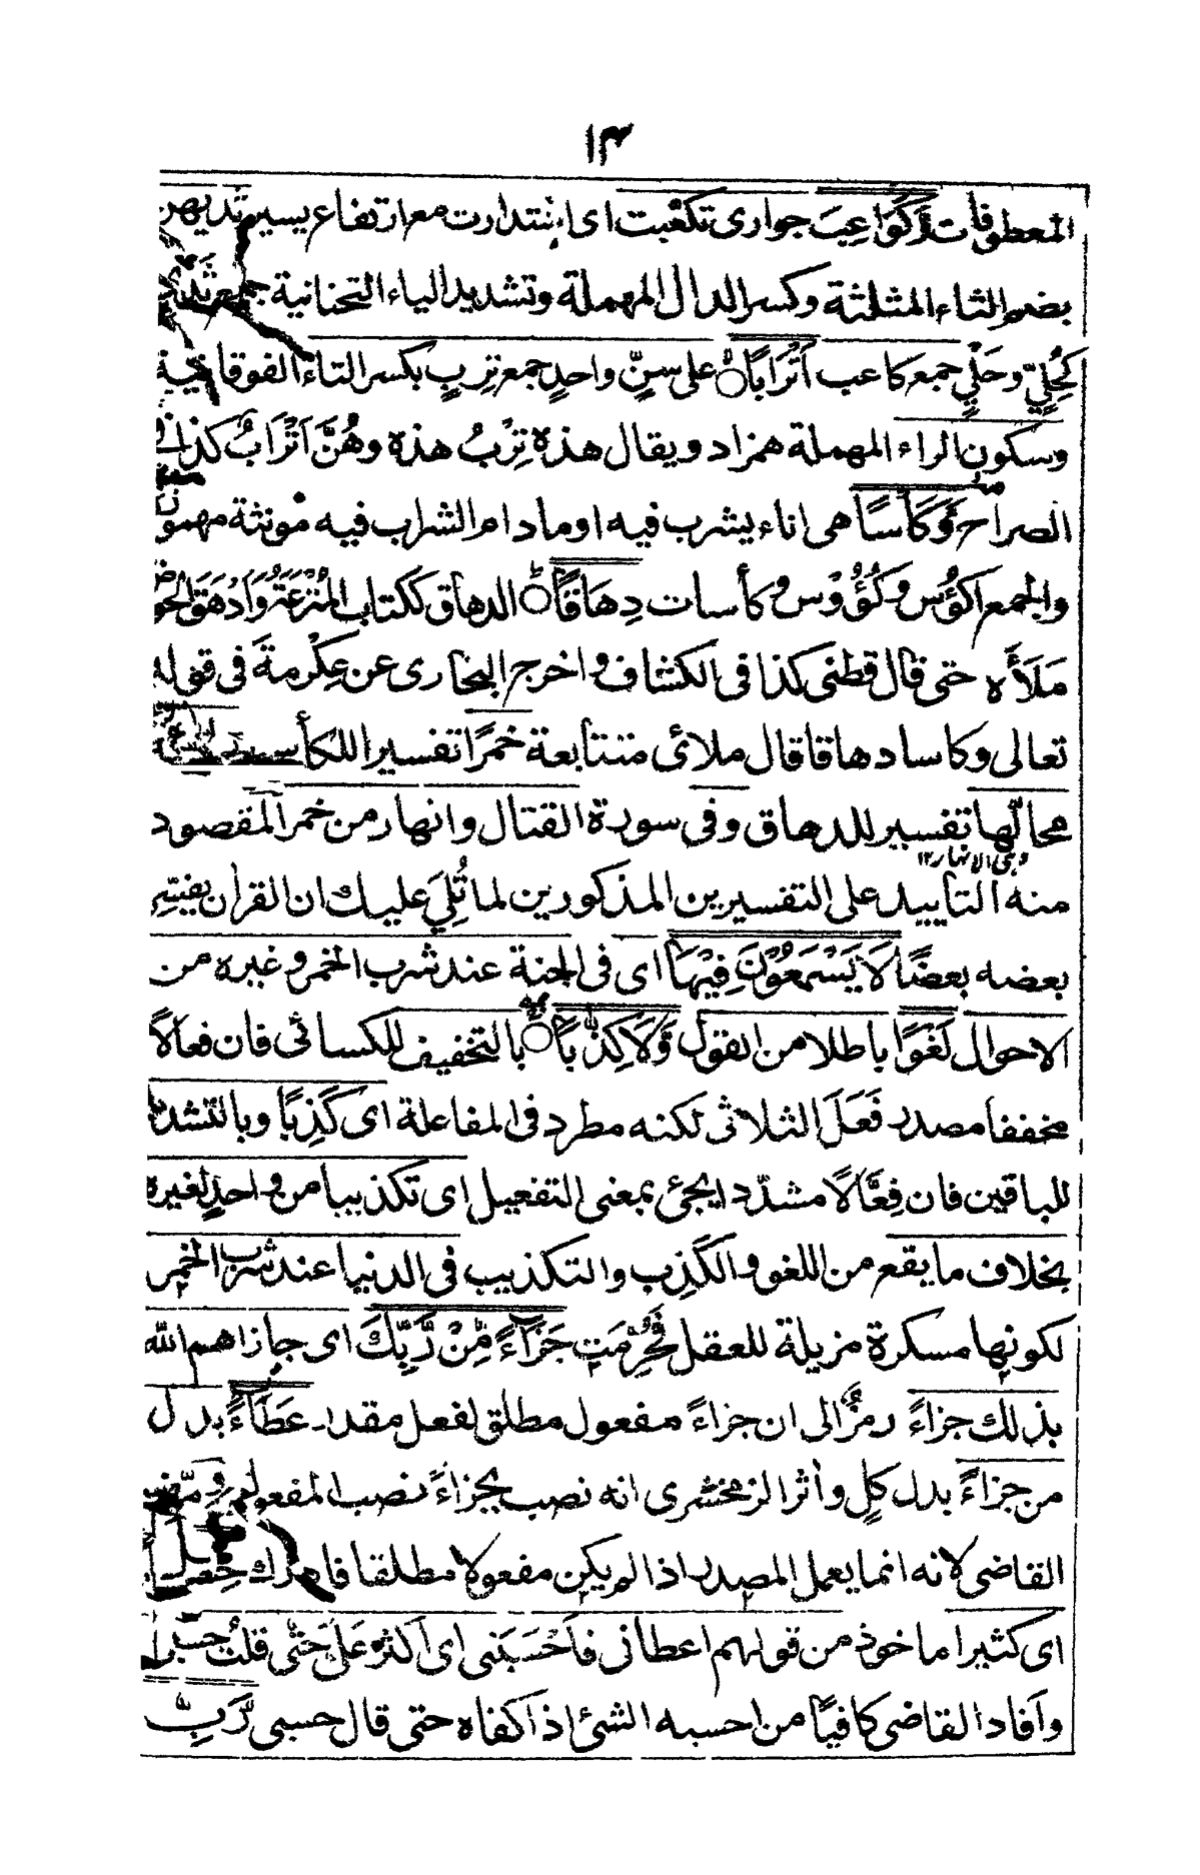 ١٣
المعطوفات وَكَوَاعِبَ جوارى تكعّبت اى استدارت مع ارتفاع يسير ثديهن
بضم الثاء المثلثة وكسر الدال المهملة وتشديد الياء التحتانية جمع
كَحُلِيّ وحَلْيٍ جمع كاعب اَتْرَابًا على سنٍّ واحدٍ جمع تِربٍ بكسر التاء الفوقانية
وسكون الراء المهملة همزاد ويقال هذه تِرْبُ هذه وهُنَّ اَتْرَابٌ كذا فى
الصراح وَكَأْسًا هى اناء يشرب فيه او مادام الشراب فيه مؤنثة مهموز
والجمع اَكْؤُس وكُؤُوْس وكأسات دِهَاقًا الدهاق ككتاب المُتْرَعَةُ وَاَدْهَقَ الحوض
مَلَأَه حتى قال قطنى كذا فى الكشاف واخرج البخارى عن عِكْرمةَ فى قوله
تعالى وكاسا دهاقا قال ملائ متتابعة خمرًا تفسير اللكأس
محالّها تفسير للدهاق وفى سورة القتال وانهار من خمر المقصود
وهى الانهار ١٢
منه التاييد على التفسيرين المذكورين لما تُلِيَ عليك ان القرأن يفسّر
بعضه بعضًا لَا يَسْمَعُوْنَ فِيْهَا اى فى الجنة عند شرب الخمر وغيره من
الاحوال لَغْوًا باطلا من القول وَّلَا كِذّٰبًا بالتخفيف للكسائى فان فعالًا
مخففا مصدر فَعَلَ الثلاثى لكنه مطرد فى المفاعلة اى كَذِبًا وبالتشديد
للباقين فان فِعَّالًا مشدّدا يجئ بمعنى التفعيل اى تكذيبا من واحدٍ لغيره
بخلاف ما يقع من اللغو والكَذِب والتكذيب فى الدنيا عند شرب الخمر
لكونها مسكرة مزيلة للعقل فَحُرِّمَت جَزَاءً مِّنْ رَّبِّكَ اى جازاهم الله
بذلك جزاءً رمزٌ الى ان جزاءً مفعول مطلق لفعل مقدر عَطَاءً بدل
من جزاءً بدل كلٍ واٰثر الزمخشرى انه نصب بجزاءً نصب المفعول به
القاضى لانه انما يعمل المصدر اذا لم يكن مفعولا مطلقا
اى كثيرا ماخوذ من قولهم اعطانى فاَحْسَبَنى اى اكثر علىَّ حتّى قلتُ حسبى
وافاد القاضى كافيًا من احسبه الشئ اذا كفاه حتى قال حسبى رَّبِّ